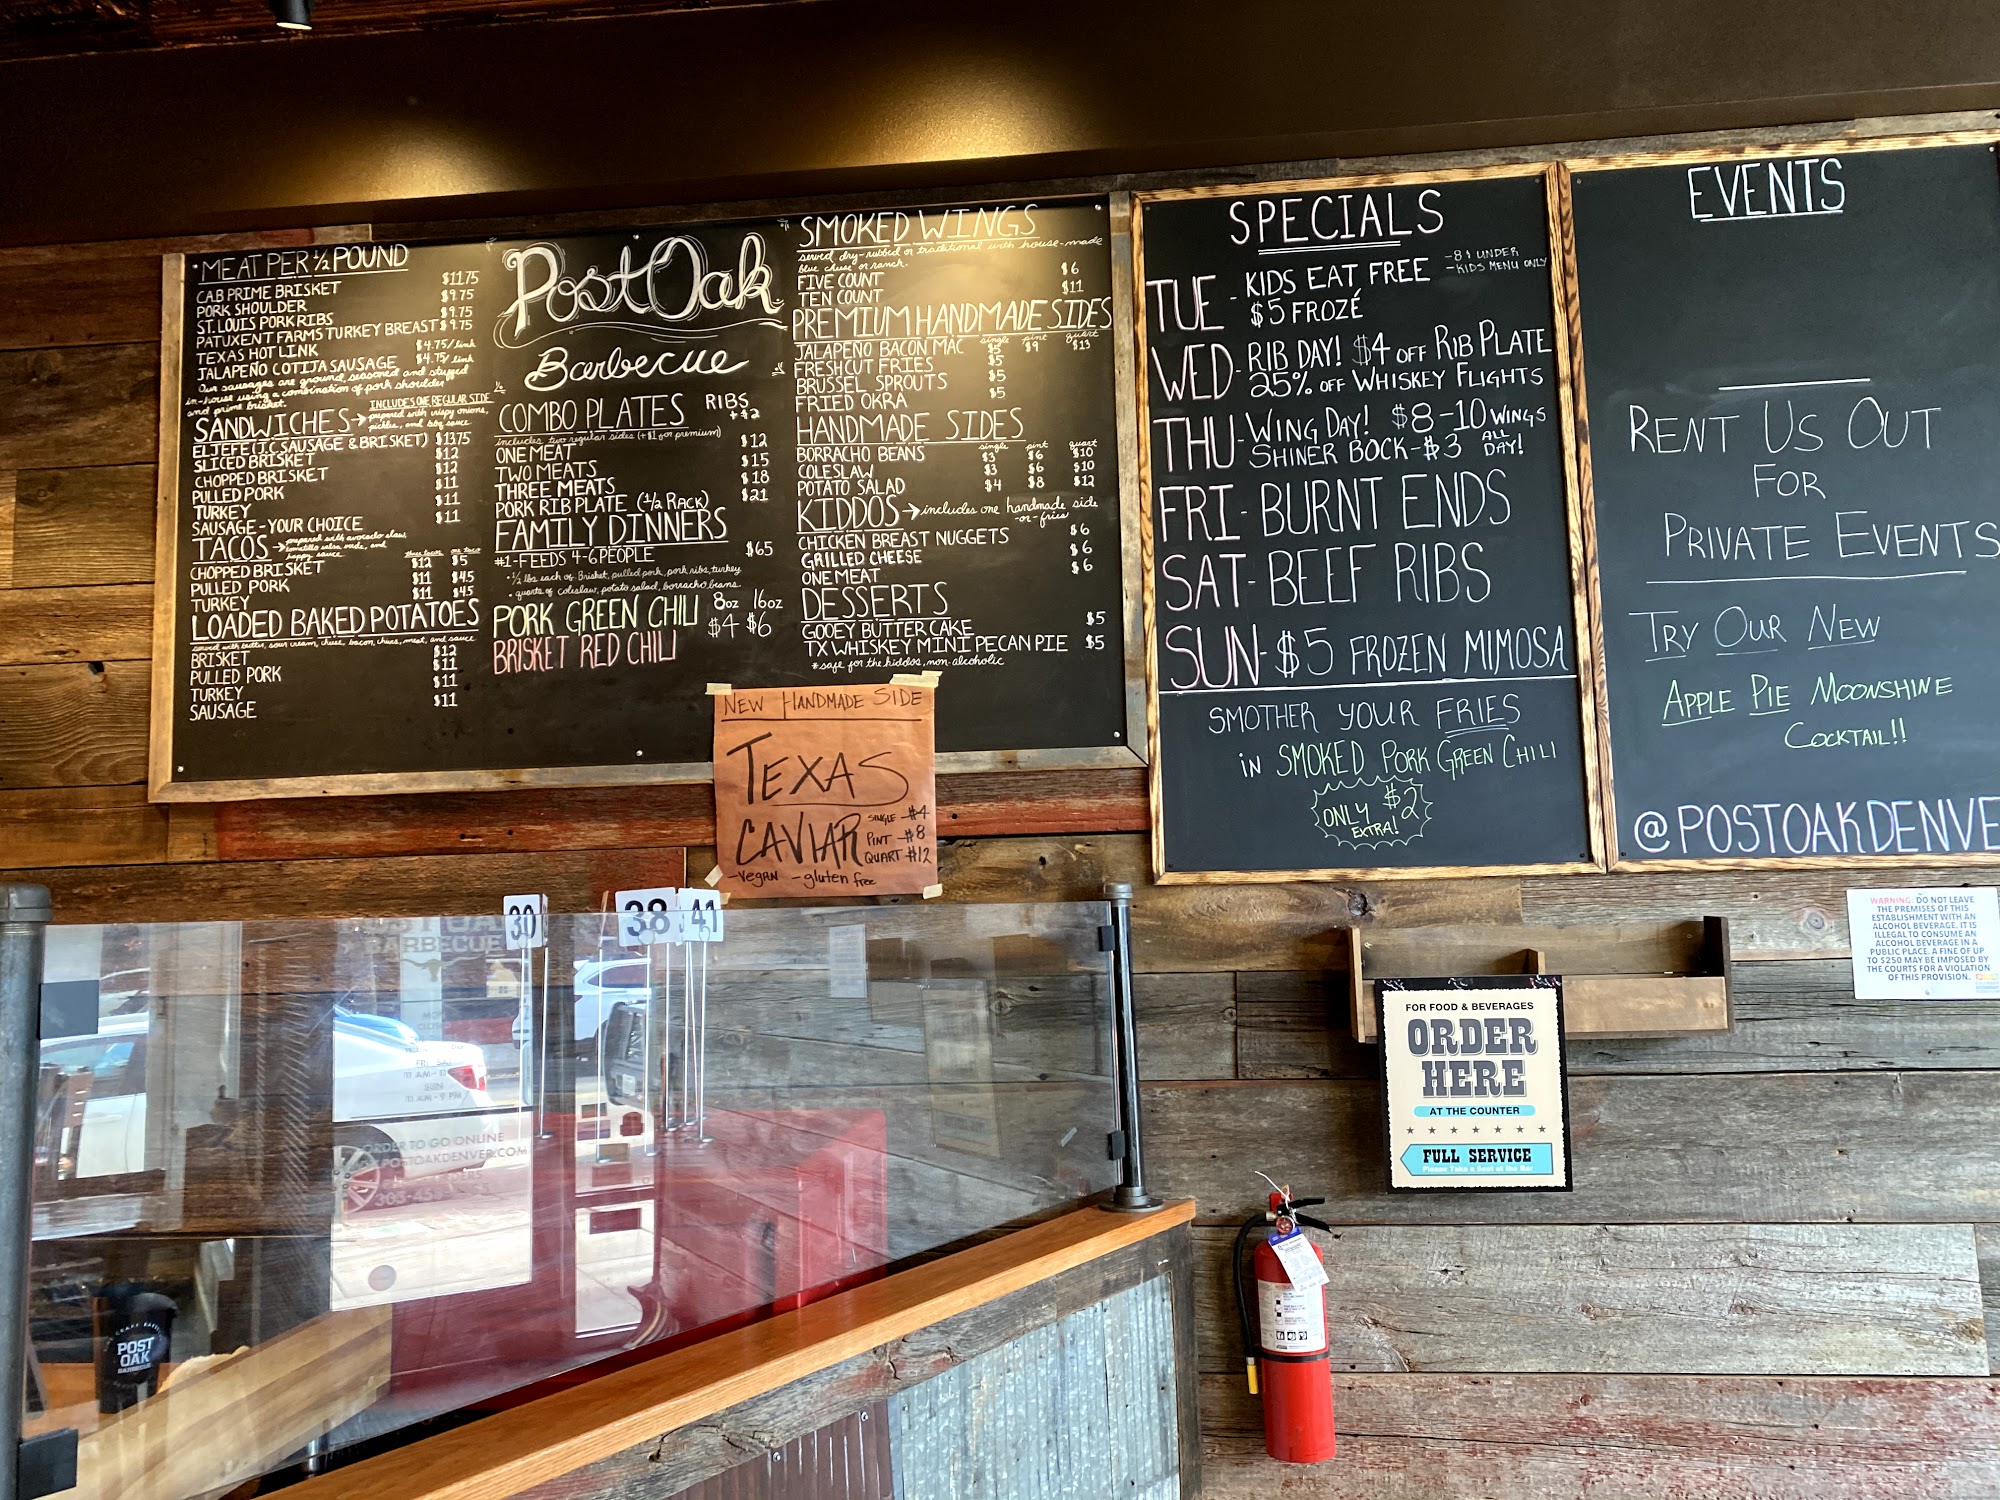 MEAT PER 1/2 POUND
CAB PRIME BRISKET $11.75
PORK SHOULDER $9.75
ST. LOUIS PORK RIBS $9.75
PATUXENT FARMS TURKEY BREAST $9.75
TEXAS HOT LINK $4.75/link
JALAPEÑO COTIJA SAUSAGE $4.75/link
Our sausages are ground, seasoned and stuffed
in-house using a combination of pork shoulder
and prime brisket.
SANDWICHES → INCLUDES ONE REGULAR SIDE
prepared with crispy onions,
pickles, and bbq sauce
EL JEFE (JC SAUSAGE & BRISKET) $13.75
SLICED BRISKET $12
CHOPPED BRISKET $12
PULLED PORK $11
TURKEY $11
SAUSAGE - YOUR CHOICE $11
TACOS → prepared with avocado slaw,
tomatillo salsa verde, and
sauce
three tacos one taco
CHOPPED BRISKET $12 $5
PULLED PORK $11 $4.5
TURKEY $11 $4.5
LOADED BAKED POTATOES
served with butter, sour cream, cheese, bacon, chives, meat, and sauce
BRISKET $12
PULLED PORK $11
TURKEY $11
SAUSAGE $11
Post Oak
Barbecue
COMBO PLATES RIBS +$2
includes two regular sides (+$1 for premium)
ONE MEAT $12
TWO MEATS $15
THREE MEATS $18
PORK RIB PLATE (1/2 RACK) $21
FAMILY DINNERS
#1 - FEEDS 4-6 PEOPLE $65
• 1/2 lbs each of Brisket, pulled pork, pork ribs, turkey
• quarts of coleslaw, potato salad, borracho beans
PORK GREEN CHILI 8oz 16oz
BRISKET RED CHILI $4 $6
SMOKED WINGS
served dry-rubbed or traditional with house-made
blue cheese or ranch.
FIVE COUNT $6
TEN COUNT $11
PREMIUM HANDMADE SIDES
single pint quart
JALAPEÑO BACON MAC $5 $9 $13
FRESH CUT FRIES $5
BRUSSEL SPROUTS $5
FRIED OKRA $5
HANDMADE SIDES
single pint quart
BORRACHO BEANS $3 $6 $10
COLESLAW $3 $6 $10
POTATO SALAD $4 $8 $12
KIDDOS → includes one handmade side
-or- fries
CHICKEN BREAST NUGGETS $6
GRILLED CHEESE $6
ONE MEAT $6
DESSERTS
GOOEY BUTTER CAKE $5
TX WHISKEY MINI PECAN PIE $5
*safe for the kiddos, non-alcoholic
NEW HANDMADE SIDE
TEXAS
CAVIAR
SINGLE - $4
PINT - $8
QUART $12
- VEGAN - gluten free
SPECIALS
TUE - KIDS EAT FREE - 8 & UNDER
- KIDS MENU ONLY
$5 FROZÉ
WED - RIB DAY! $4 OFF RIB PLATE
25% OFF WHISKEY FLIGHTS
THU - WING DAY! $8 - 10 WINGS
SHINER BOCK - $3 ALL DAY!
FRI - BURNT ENDS
SAT - BEEF RIBS
SUN - $5 FROZEN MIMOSA
SMOTHER YOUR FRIES
IN SMOKED PORK GREEN CHILI
ONLY $2
EXTRA!
EVENTS
RENT US OUT
FOR
PRIVATE EVENTS
TRY OUR NEW
APPLE PIE MOONSHINE
COCKTAIL!!
@POSTOAKDENVE
WARNING: DO NOT LEAVE
THE PREMISES OF THIS
ESTABLISHMENT WITH AN
ALCOHOL BEVERAGE. IT IS
ILLEGAL TO CONSUME AN
ALCOHOL BEVERAGE IN A
PUBLIC PLACE. A FINE OF UP
TO $250 MAY BE IMPOSED BY
THE COURTS FOR A VIOLATION
OF THIS PROVISION.
30 38 41
BARBECUE
FOR FOOD & BEVERAGES
ORDER
HERE
AT THE COUNTER
FULL SERVICE
Please Take a Seat at the Bar
ORDER TO GO ONLINE
POSTOAKDENVER.COM
POST
OAK
BARBECUE